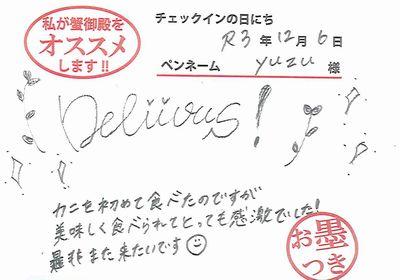 私が蟹御殿を
オススメ
します!!
チェックインの日にち
R3年12月6日
ペンネーム yuzu 様
Deliivus!
カニを初めて食べたのですが
美味しく食べられてとっても感激でした!
是非また来たいです
お墨
つき